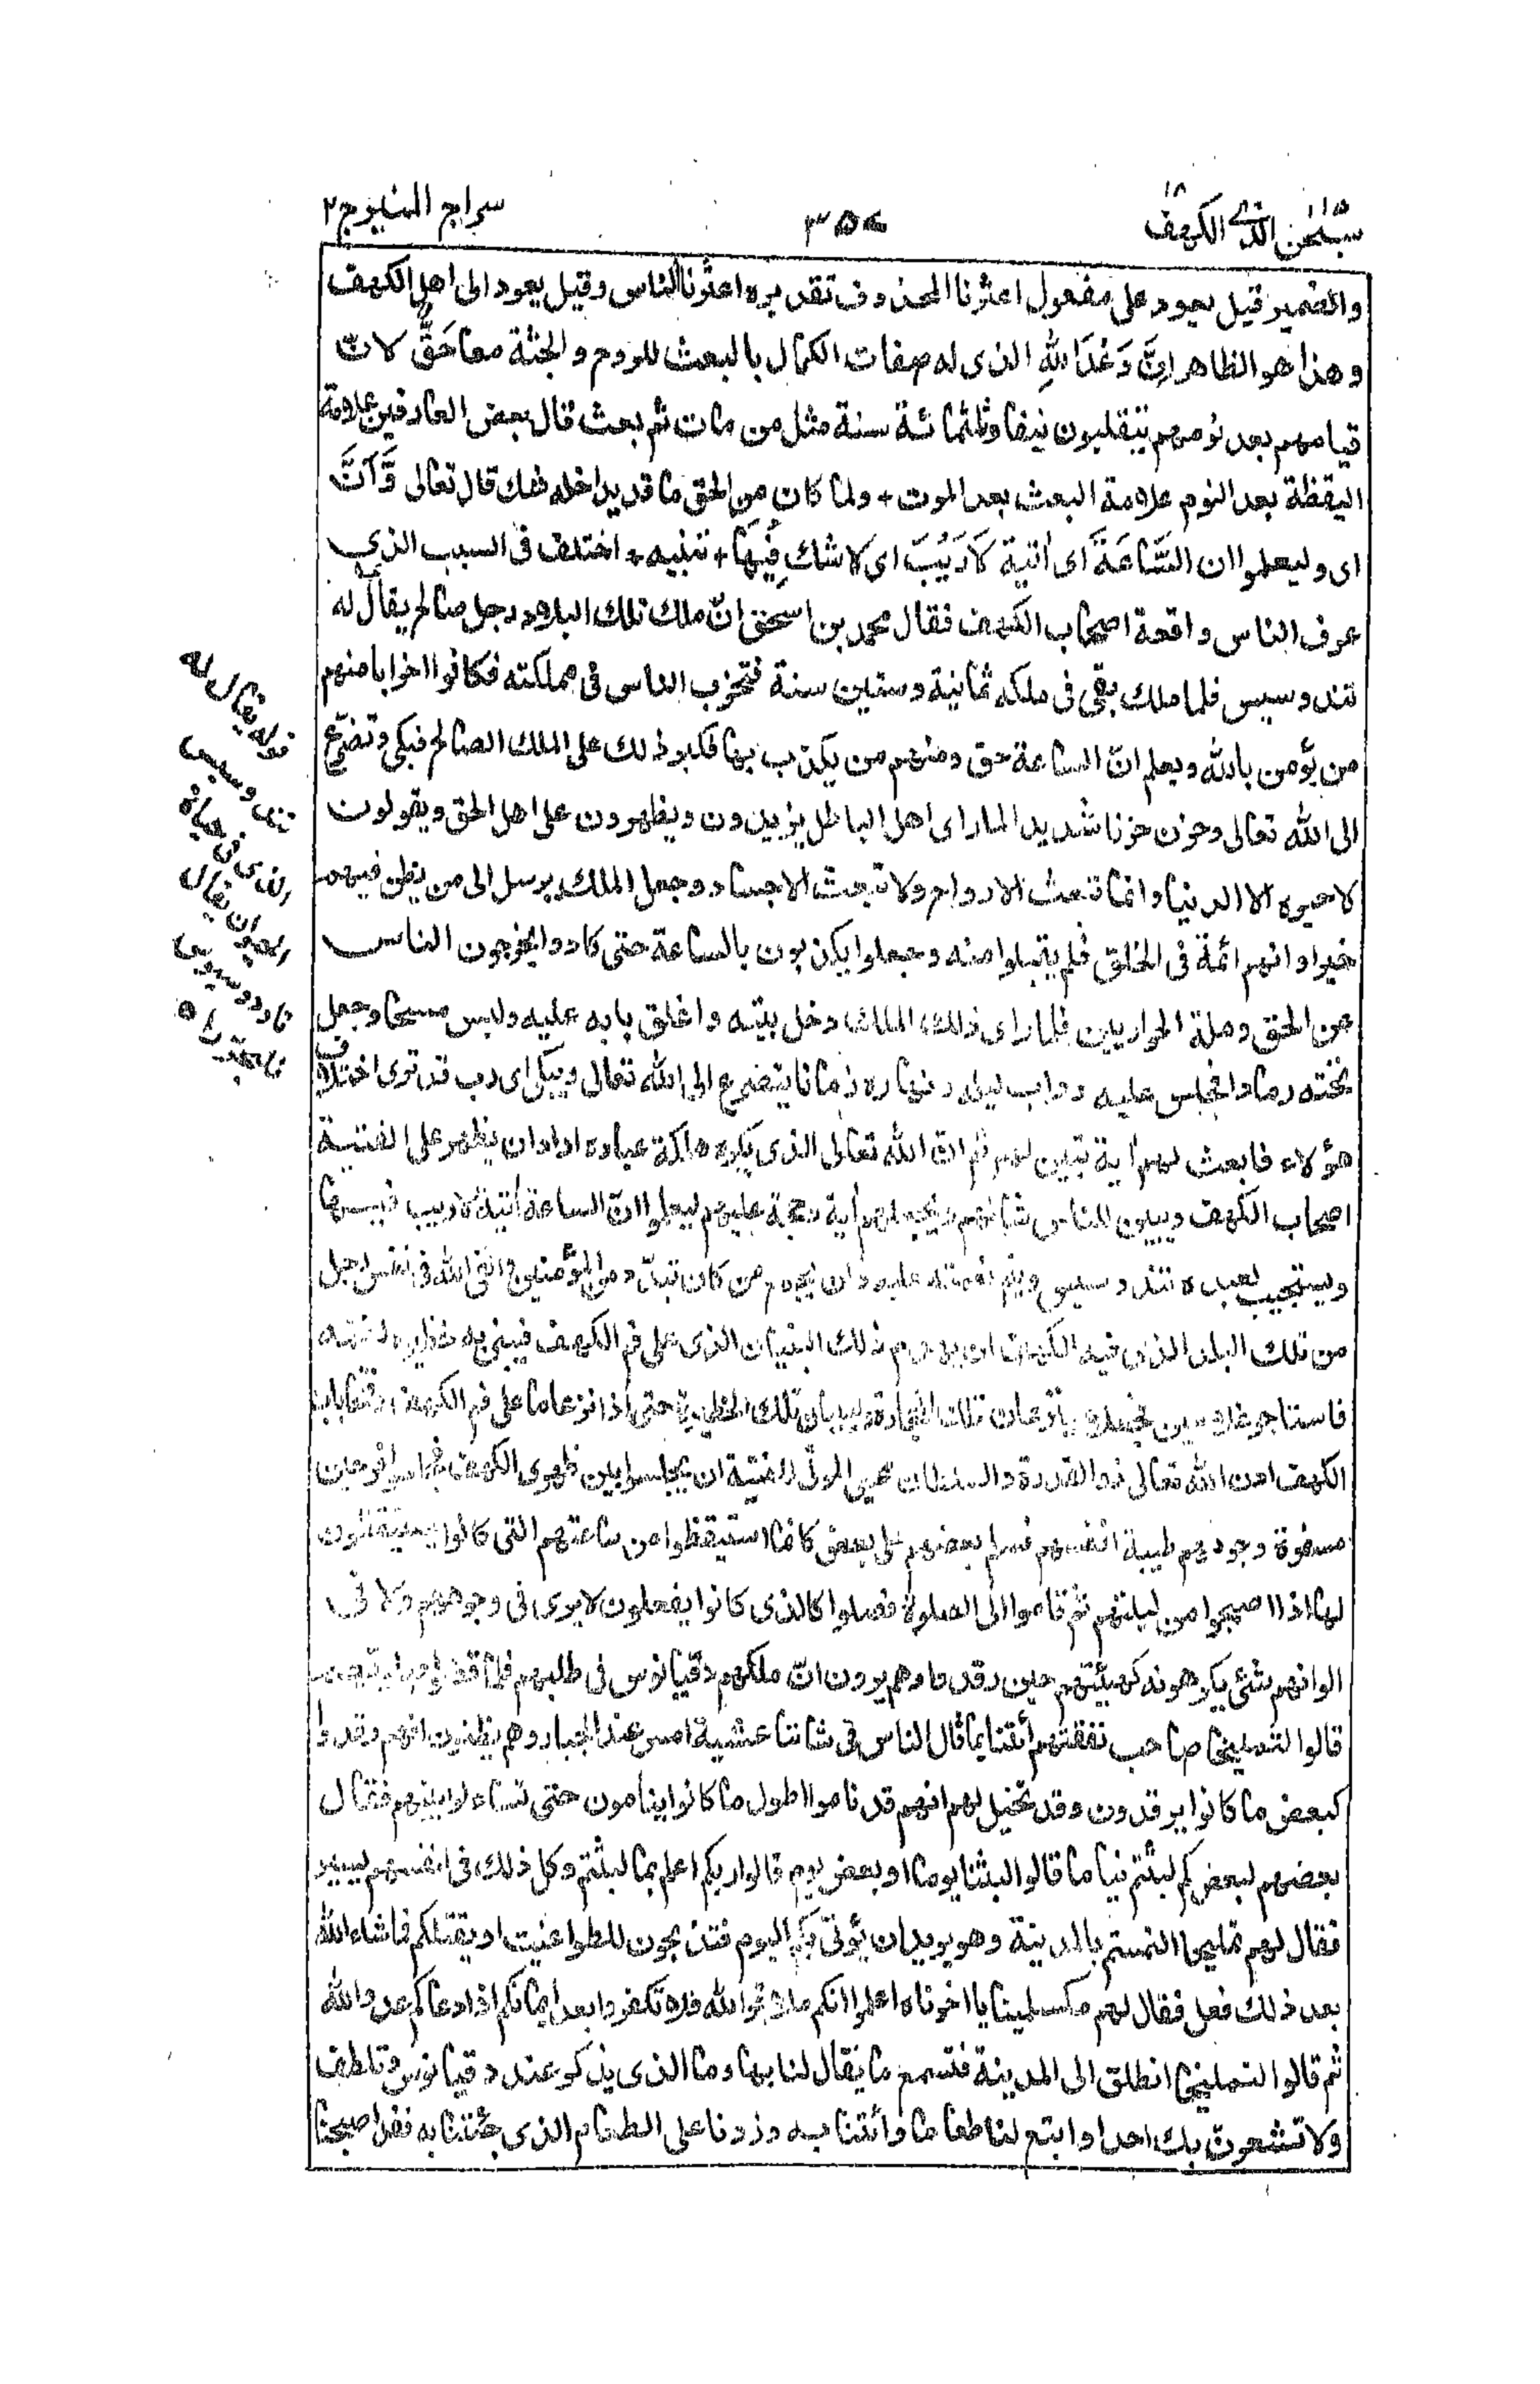 سبحٰن الذی ١٥ الکهف ١٨
٣٥٤
سراج المنیر ج ٢
والضمیر قیل یعود علی مفعول اعثرنا المحذوف تقدیره اعثرنا الناس وقیل یعود الی اهل الکهف
وهذا هو الظاهر اِنَّ وَعْدَ اللهِ الذی له صفات الکمال بالبعث للروح والجثة معا حَقٌّ لانّ
قیامهم بعد نومهم یتقلبون نیفا وثلثمائة سنة مثل من مات ثم بعث قال بعض العارفین علامة
الیقظة بعد النوم علامة البعث بعد الموت + ولما کان من الحق ما قد یداخله شك قال تعالی وَّاَنَّ
ای ولیعلموا ان السَّاعَةَ ای اٰتیة لَارَیْبَ ای لا شك فِیْهَا + تنبیه + اختلف فی السبب الذی
عرف الناس واقعة اصحاب الکهف فقال محمد بن اسحٰق انّ ملك تلك البلاد رجل صالح یقال له
تندوسیس فلما ملك بقی فی ملکه ثمانیة وستین سنة فتحزب الناس فی مملکته فکانوا احزابا منهم
من یؤمن بالله ویعلم انّ الساعة حق ومنهم من یکذب بها فکبر ذلك علی الملك الصالح فبکی وتضرّع
الی الله تعالی وحزن حزنا شدیدا لما رای اهل الباطل یزیدون ویظهرون علی اهل الحق ویقولون
لا حیوة الا الدنیا وانما تبعث الارواح ولا تبعث الاجساد وجعل الملك یرسل الی من یظن فیهم
خیرا وانهم ائمة فی الخلق فلم یقبلوا منه وجعلوا یکذبون بالساعة حتی کادوا یخرجون الناس
عن الحق وملة الحواریین فلما رای ذلك الملك دخل بیته واغلق بابه علیه ولبس مسحا وجعل
تحته رمادا فجلس علیه وداب لیله ونهاره زمانا یتضرع الی الله تعالی ویبکی ای رب قد تری اختلاف
هؤلاء فابعث لهم اٰیة تبین لهم ثم انّ الله تعالی الذی یکره هلکة عباده اراد ان یظهر علی الفتیة
اصحاب الکهف ویبین للناس شانهم ویجعلهم اٰیة وحجة علیهم لیعلموا انّ الساعة اٰتیة لا ریب فیها
ویستجیب لعبده تندوسیس ویتم نعمته علیه وان یجمع من کان تبدّد من المؤمنین والقی الله فی نفس رجل
من تلك البلد الذی فیه الکهف ان یهدم ذلك البنیان الذی علی فم الکهف فیبنی به حظیرة لغنمه
فاستاجر غلامین فجعلا ینزعان تلك الحجارة ویبنیان تلك الحظیرة حتی اذا نزعا ما علی فم الکهف وفتحا باب
الکهف اذن الله تعالی ذو القدرة والسلطان محیی الموتٰی للفتیة ان یجلسوا بین ظهری الکهف فجلسوا فرحین
مسفرة وجوههم طیبة انفسهم فسلم بعضهم علی بعض کانما استیقظوا من ساعتهم التی کانوا یستیقظون
لها اذا اصبحوا من لیلتهم ثم قاموا الی الصلوة فصلوا کالذی کانوا یفعلون لا یری فی وجوههم ولا فی
الوانهم شئ یکرهونه کهیئتهم حین رقدوا وهم یرون انّ ملکهم دقیانوس فی طلبهم فلما قضوا صلوتهم
قالوا لتملیخا صاحب نفقتهم أئتنا بما قال الناس فی شاننا عشیة امس عند الجبار وهم یظنون انهم رقدوا
کبعض ما کانوا یرقدون وقد تخیل لهم انهم قد ناموا اطول ما کانوا ینامون حتی تساءلوا بینهم فقال
بعضهم لبعض کم لبثتم نیاما قالوا لبثنا یوما او بعض یوم قالوا ربکم اعلم بما لبثتم وکل ذلك فی انفسهم یسیر
فقال لهم تملیخا التمستم بالمدینة وهو یرید ان یؤتی بکم الیوم فتذبحون للطواغیت او یقتلکم فما شاء الله
بعد ذلك فعل فقال لهم مکسلمینا یا اخوتاه اعلموا انکم ملاقوا الله فلا تکفروا بعد ایمانکم اذا دعاکم عدو الله
ثم قالوا لتملیخا انطلق الی المدینة فتسمع ما یقال لنا بها وما الذی یذکر عند دقیانوس وتلطف
ولا تشعرنّ بك احدا وابتع لنا طعاما وأئتنا به وزدنا علی الطعام الذی جئتنا به فقد اصبحنا
قوله یقال له
تندوسیس
الذی فی
ان یقال